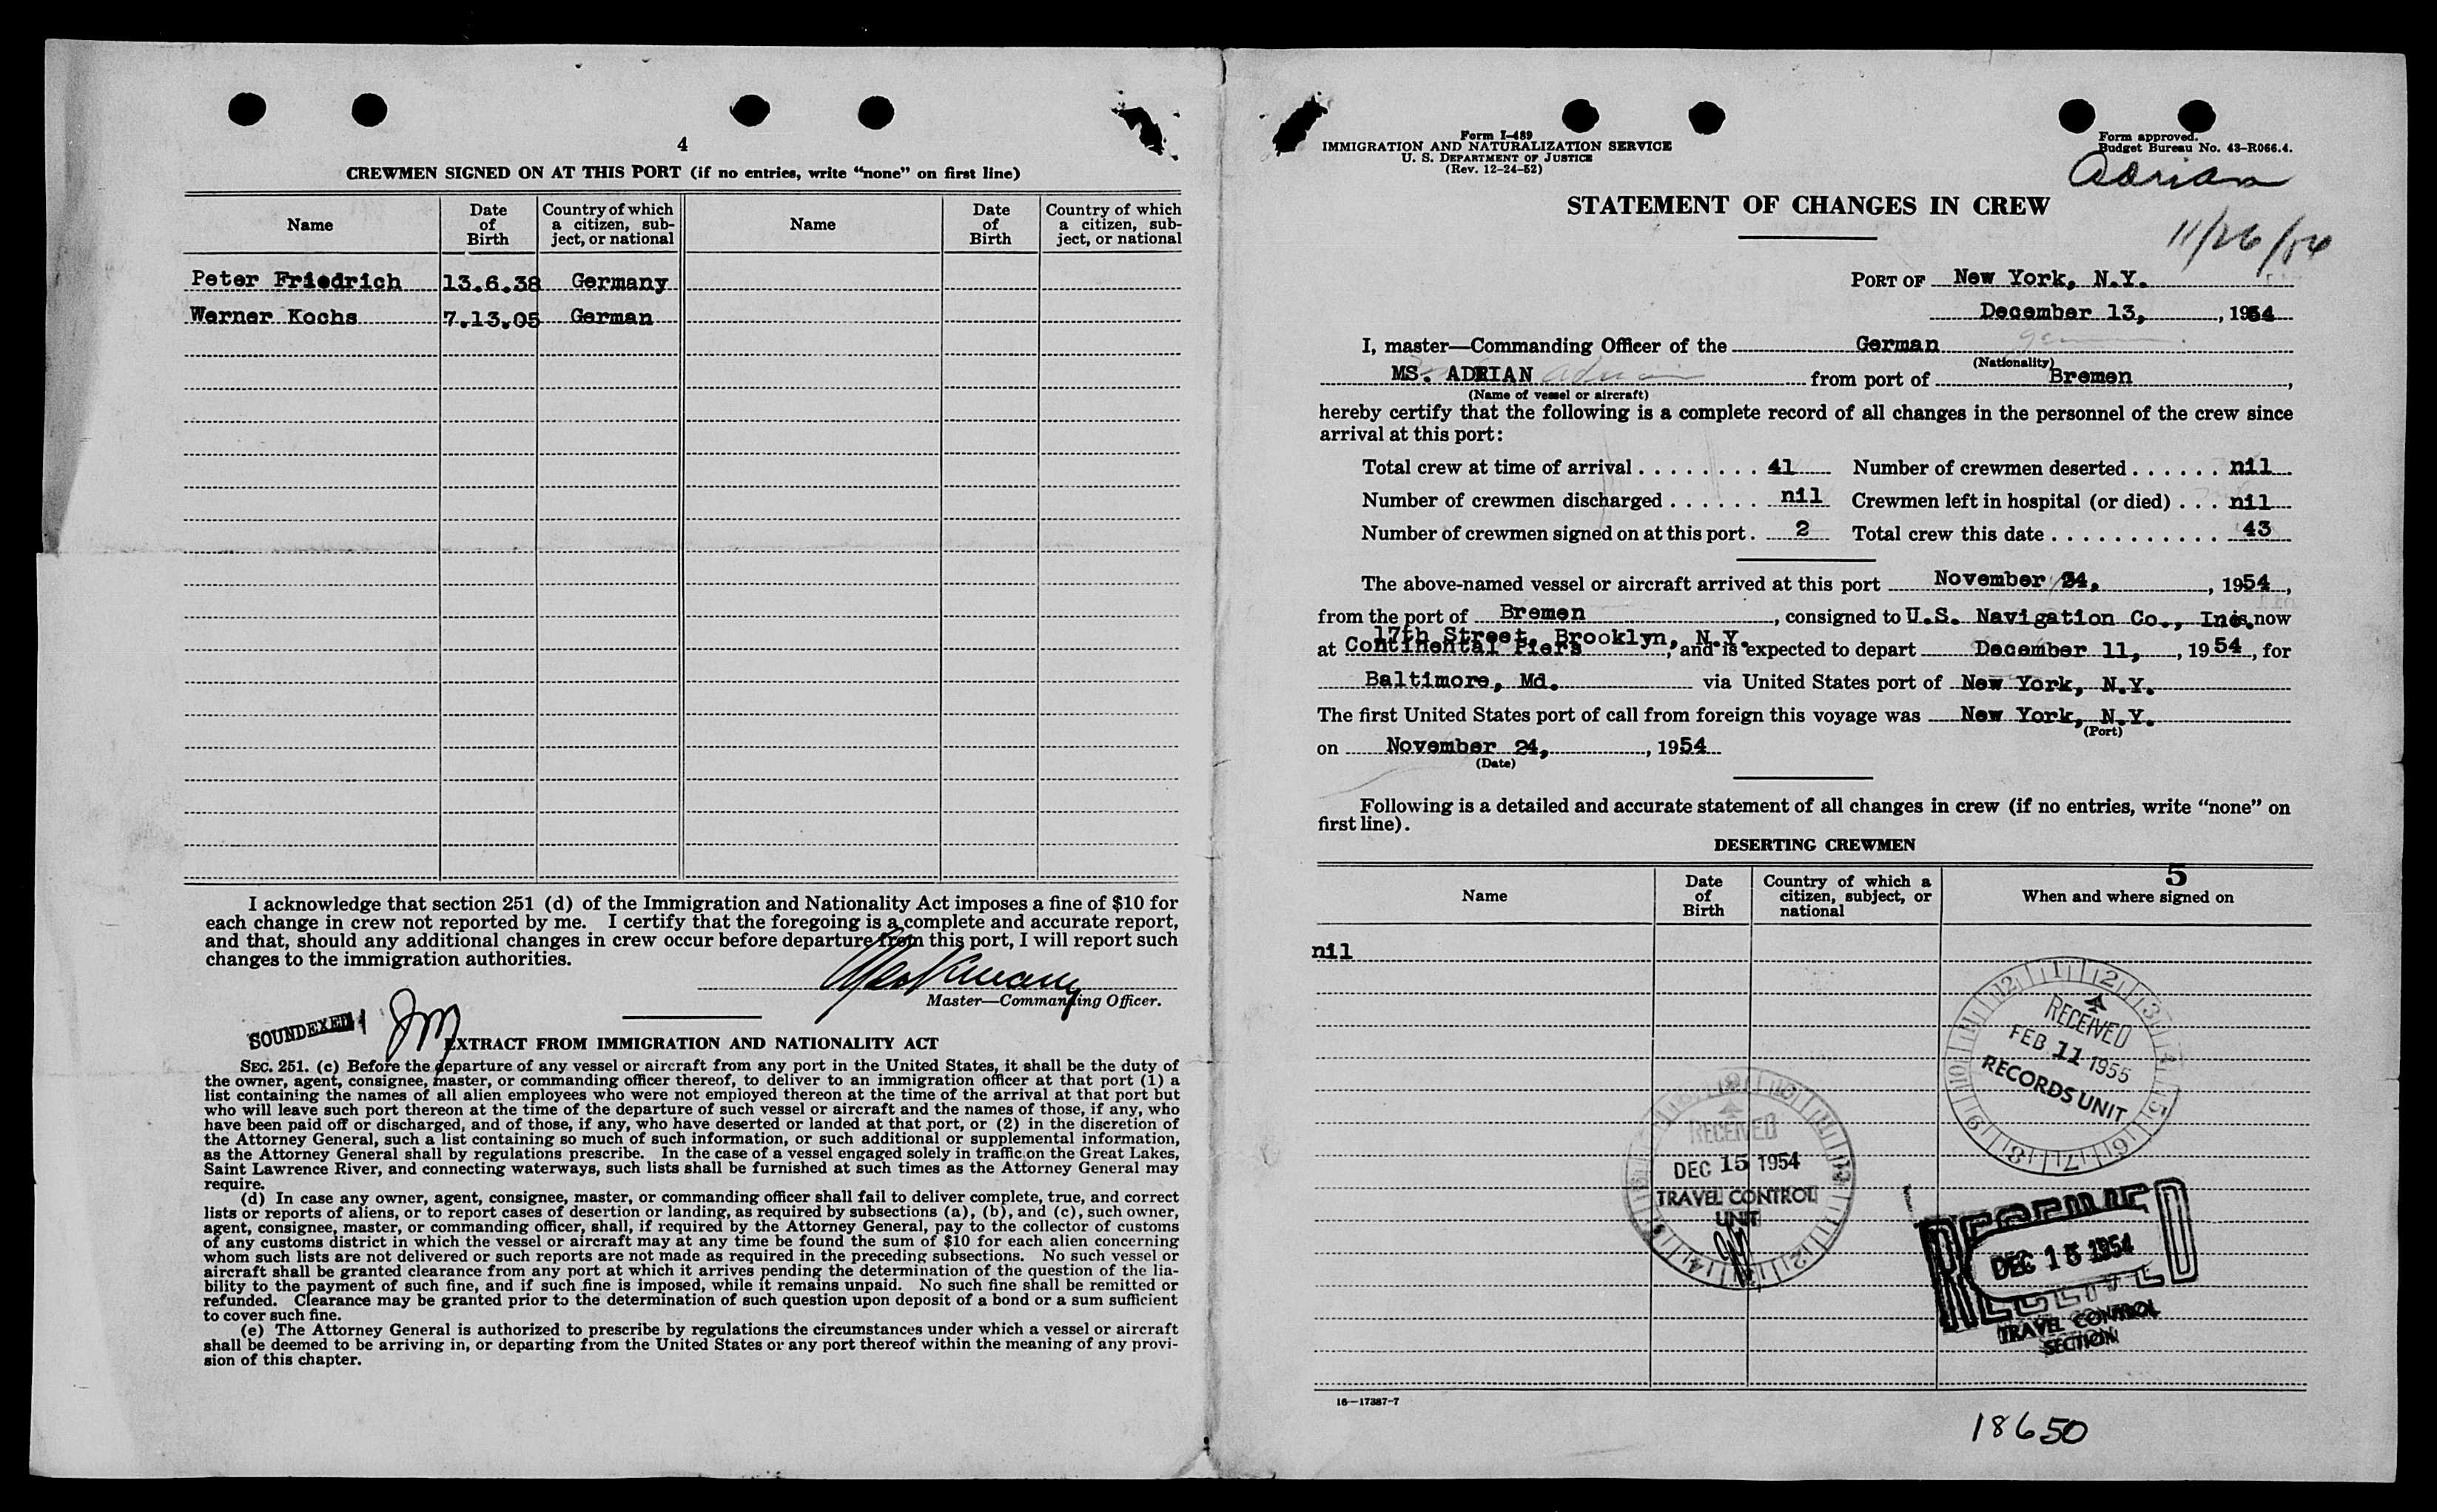 4
CREWMEN SIGNED ON AT THIS PORT (if no entries, write “none” on first line)
Name Date of Birth Country of which a citizen, subject, or national Name Date of Birth Country of which a citizen, subject, or national
Peter Friedrich 13.6.38 Germany
Werner Kochs 7.13.05 German
I acknowledge that section 251 (d) of the Immigration and Nationality Act imposes a fine of $10 for
each change in crew not reported by me. I certify that the foregoing is a complete and accurate report,
and that, should any additional changes in crew occur before departure from this port, I will report such
changes to the immigration authorities.
Master—Commanding Officer.
SOUNDEXED
EXTRACT FROM IMMIGRATION AND NATIONALITY ACT
SEC. 251. (c) Before the departure of any vessel or aircraft from any port in the United States, it shall be the duty of
the owner, agent, consignee, master, or commanding officer thereof, to deliver to an immigration officer at that port (1) a
list containing the names of all alien employees who were not employed thereon at the time of the arrival at that port but
who will leave such port thereon at the time of the departure of such vessel or aircraft and the names of those, if any, who
have been paid off or discharged, and of those, if any, who have deserted or landed at that port, or (2) in the discretion of
the Attorney General, such a list containing so much of such information, or such additional or supplemental information,
as the Attorney General shall by regulations prescribe. In the case of a vessel engaged solely in traffic on the Great Lakes,
Saint Lawrence River, and connecting waterways, such lists shall be furnished at such times as the Attorney General may
require.
(d) In case any owner, agent, consignee, master, or commanding officer shall fail to deliver complete, true, and correct
lists or reports of aliens, or to report cases of desertion or landing, as required by subsections (a), (b), and (c), such owner,
agent, consignee, master, or commanding officer, shall, if required by the Attorney General, pay to the collector of customs
of any customs district in which the vessel or aircraft may at any time be found the sum of $10 for each alien concerning
whom such lists are not delivered or such reports are not made as required in the preceding subsections. No such vessel or
aircraft shall be granted clearance from any port at which it arrives pending the determination of the question of the lia-
bility to the payment of such fine, and if such fine is imposed, while it remains unpaid. No such fine shall be remitted or
refunded. Clearance may be granted prior to the determination of such question upon deposit of a bond or a sum sufficient
to cover such fine.
(e) The Attorney General is authorized to prescribe by regulations the circumstances under which a vessel or aircraft
shall be deemed to be arriving in, or departing from the United States or any port thereof within the meaning of any provi-
sion of this chapter.
Form I-489
IMMIGRATION AND NATURALIZATION SERVICE
U. S. DEPARTMENT OF JUSTICE
(Rev. 12-24-52)
Form approved.
Budget Bureau No. 43-R066.4.
Adrian
STATEMENT OF CHANGES IN CREW
11/26/54
PORT OF New York, N.Y.
December 13, , 1954
I, master—Commanding Officer of the German german
(Nationality)
MS. ADRIAN Adrian from port of Bremen ,
(Name of vessel or aircraft)
hereby certify that the following is a complete record of all changes in the personnel of the crew since
arrival at this port:
Total crew at time of arrival . . . . . . . . 41 Number of crewmen deserted . . . . . . nil
Number of crewmen discharged . . . . . . nil Crewmen left in hospital (or died) . . . nil
Number of crewmen signed on at this port . 2 Total crew this date . . . . . . . . . . . 43
The above-named vessel or aircraft arrived at this port November 24, , 1954 ,
from the port of Bremen , consigned to U.S. Navigation Co., Inc. is now
17th Street, Brooklyn, N.Y.
at Continental Piers , and is expected to depart December 11, , 1954 , for
Baltimore, Md. via United States port of New York, N.Y.
The first United States port of call from foreign this voyage was New York, N.Y.
(Port)
on November 24, , 1954
(Date)
Following is a detailed and accurate statement of all changes in crew (if no entries, write “none” on
first line).
DESERTING CREWMEN
5
Name Date of Birth Country of which a citizen, subject, or national When and where signed on
nil
RECEIVED
FEB 11 1955
RECORDS UNIT
RECEIVED
DEC 15 1954
TRAVEL CONTROL
UNIT
RECEIVED
DEC 15 1954
TRAVEL CONTROL
SECTION
16—17387-7
18650